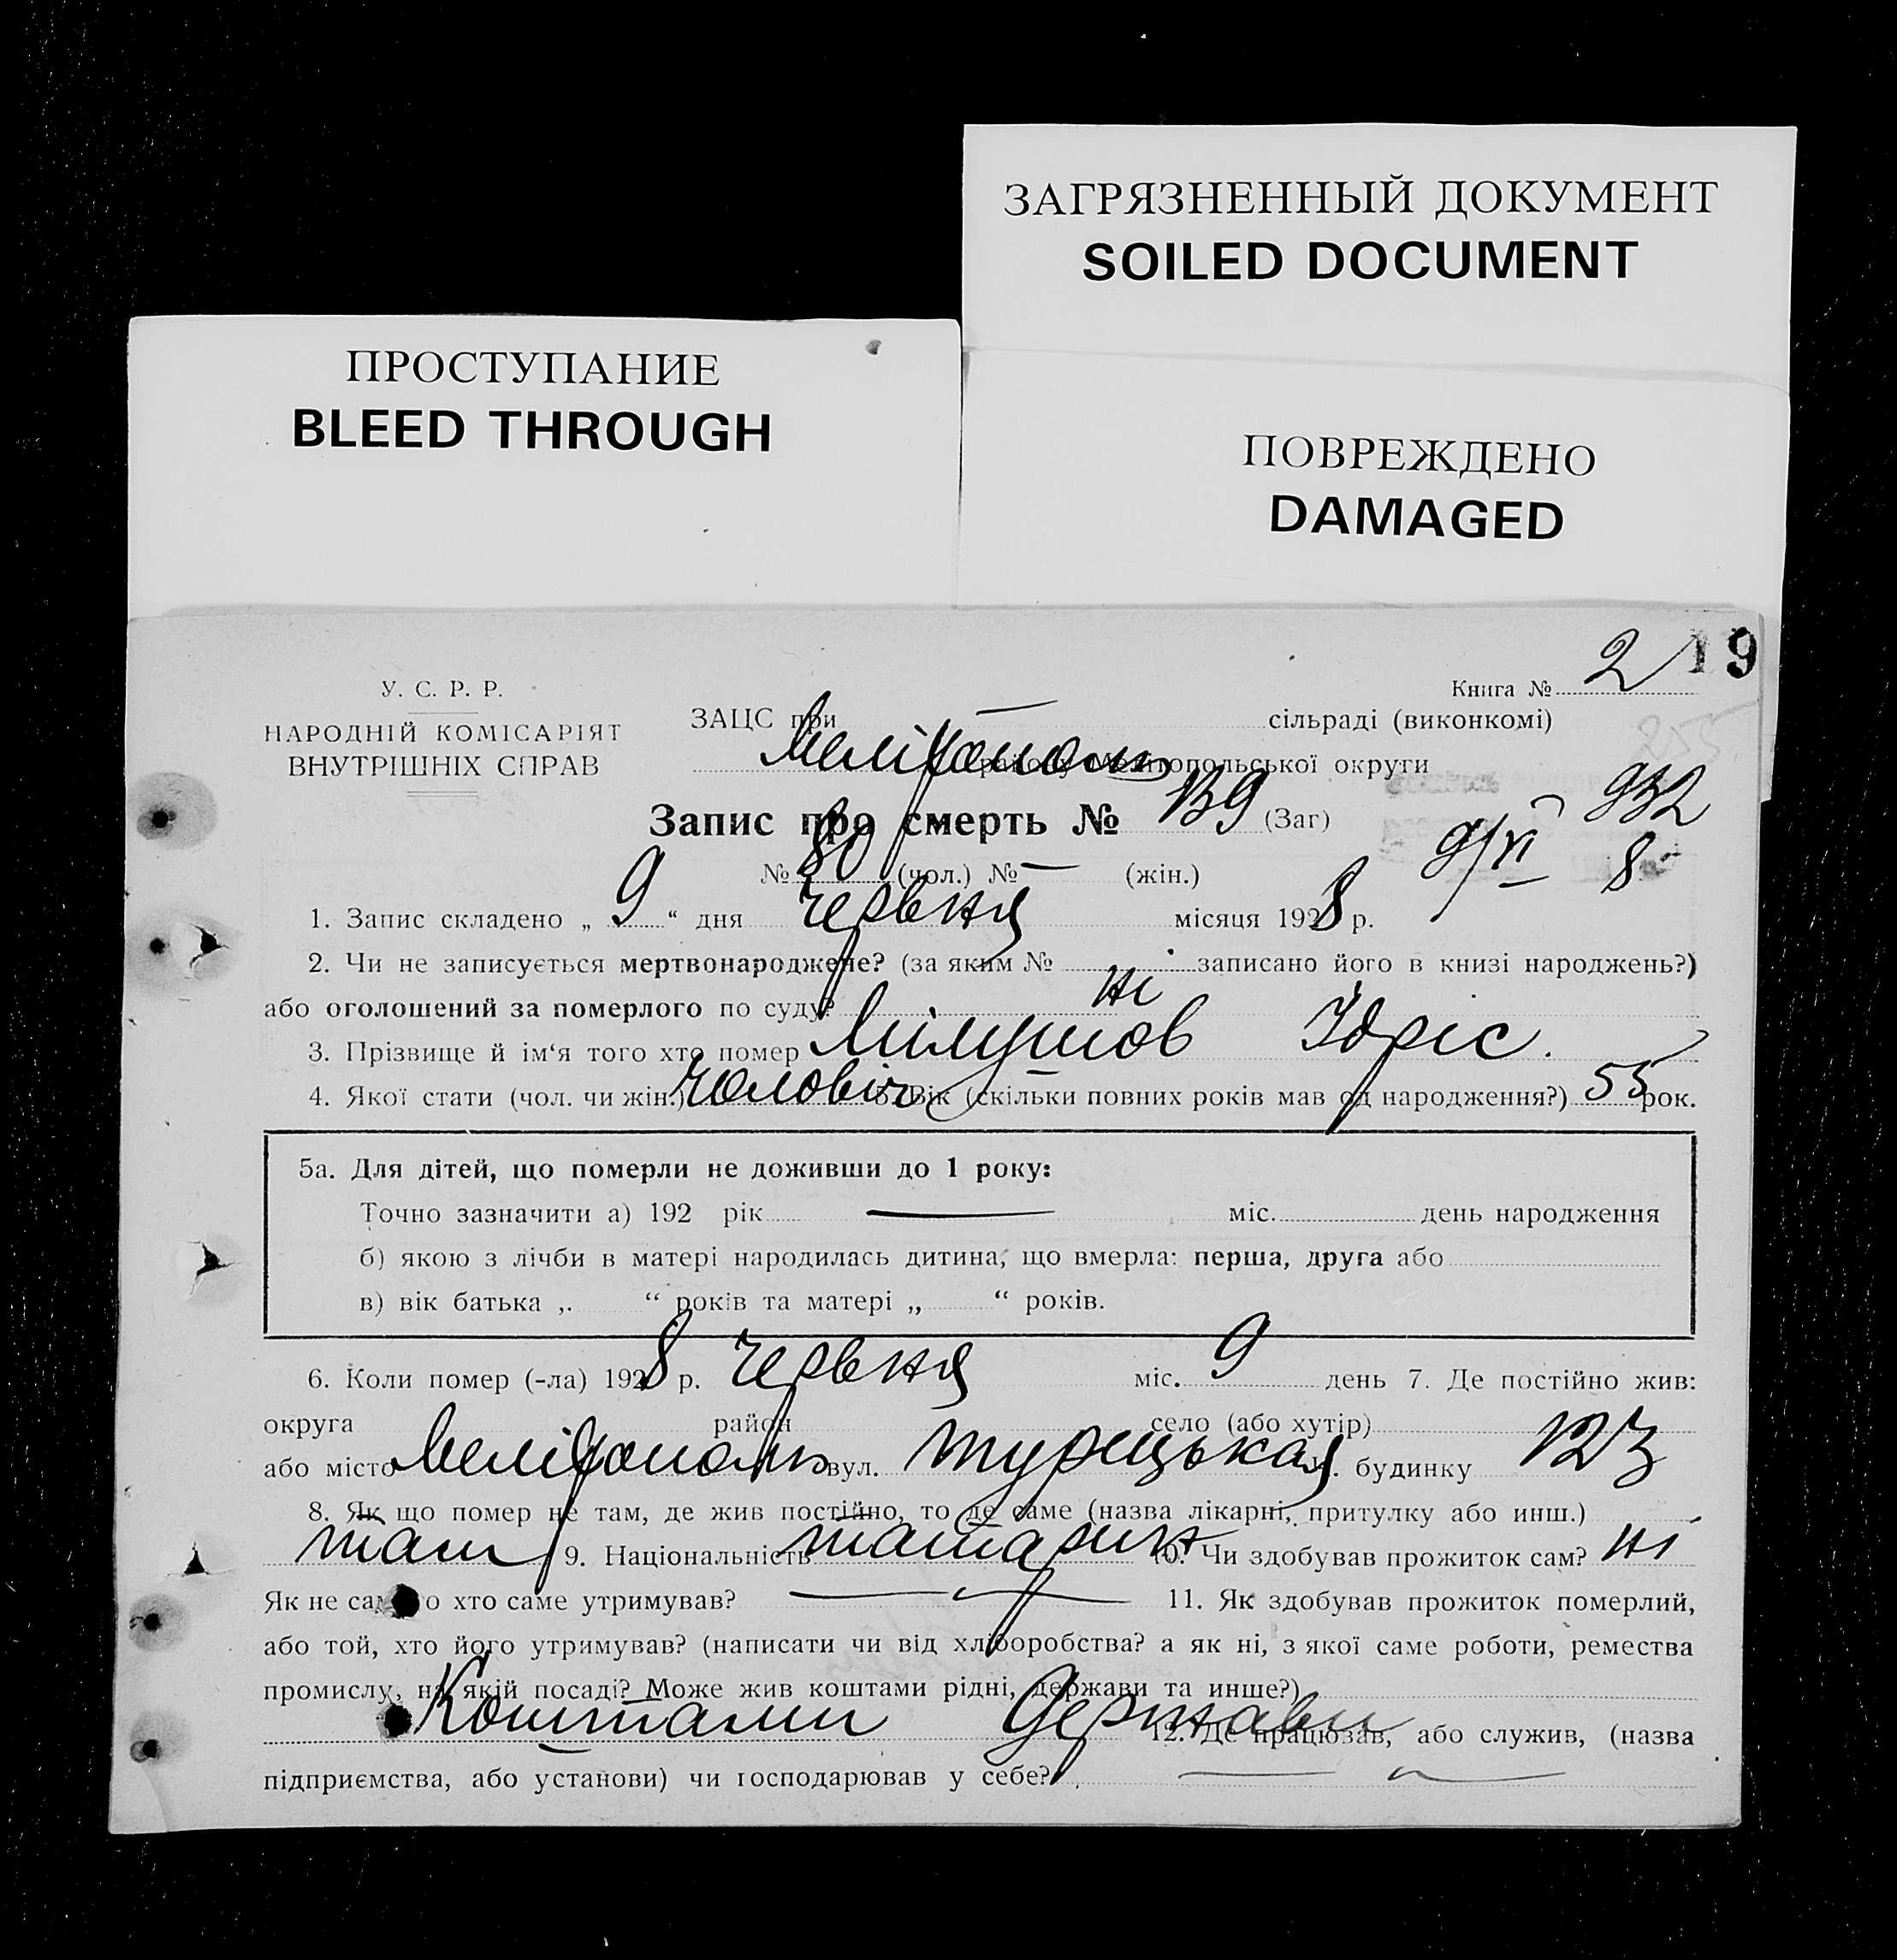 ЗАГРЯЗНЕННЫЙ ДОКУМЕНТ
SOILED DOCUMENT
ПРОСТУПАНИЕ
BLEED THROUGH
ПОВРЕЖДЕНО
DAMAGED
19
У. С. Р. Р.
НАРОДНІЙ КОМІСАРІЯТ
ВНУТРІШНІХ СПРАВ
Книга № 2
ЗАЦС при — сільраді (виконкомі)
Мелітополь району Мелітопольської округи
Запис про смерть № 139 (Заг)
932
№ 80 (чол.) № — (жін.)
9/VI 8
1. Запис складено „ 9 “ дня червня місяця 1928 р.
2. Чи не записується мертвонароджене? (за яким № записано його в книзі народжень?)
або оголошений за померлого по суду? ні
3. Прізвище й ім‘я того хто помер Мілушов Ідріс.
4. Якої стати (чол. чи жін.) чоловіч 5. Вік (скільки повних років мав од народження?) 55 рок.
5а. Для дітей, що померли не доживши до 1 року:
Точно зазначити а) 192 рік — міс. день народження
б) якою з лічби в матері народилась дитина, що вмерла: перша, друга або
в) вік батька „ “ років та матері „ “ років.
6. Коли помер (-ла) 1928 р. червня міс. 9 день 7. Де постійно жив:
округа район село (або хутір)
або місто Мелітополь вул. Турецькая № будинку 123
8. Як що помер не там, де жив постійно, то де саме (назва лікарні, притулку або инш.)
там 9. Національність татарин 10. Чи здобував прожиток сам? ні
Як не сам то хто саме утримував? — 11. Як здобував прожиток померлий,
або той, хто його утримував? (написати чи від хліборобства? а як ні, з якої саме роботи, ремества
промислу, на якій посаді? Може жив коштами рідні, держави та инше?)
Коштами держави 12. Де працював, або служив, (назва
підприємства, або установи) чи господарював у себе? —